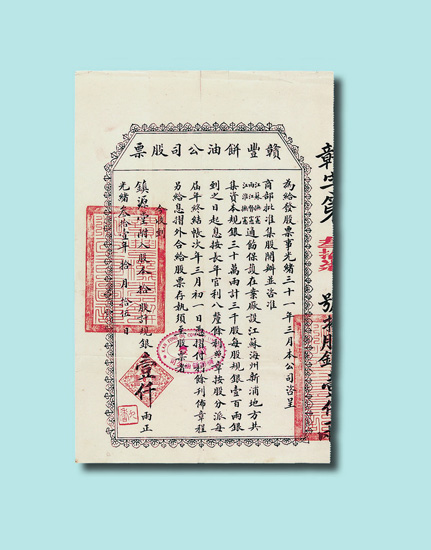 票股司公油餅豐贛
為給發股票事光緒三十一年三月本公司咨呈
商部批准集股開辦並咨准
江蘇撫憲
兩江督憲
江淮撫憲
通飭保護在案廠設江蘇海州新浦地方共
集資本規銀三十萬兩計三千股每股規銀壹百兩銀
到之日起息按長年官利八釐餘利照章按股分派每
屆年終結帳次年三月初一日憑摺付利餘利佈章程
另給息摺外合給股票存執須至股票者
今收到
鎮源堂附入股本拾股計規銀壹仟兩正
光緒叁拾壹年拾月拾伍日